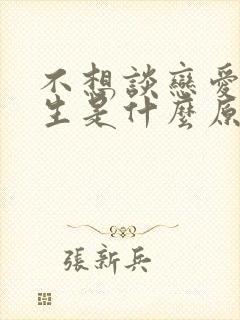 不想談戀愛
生是什麼原
張新兵